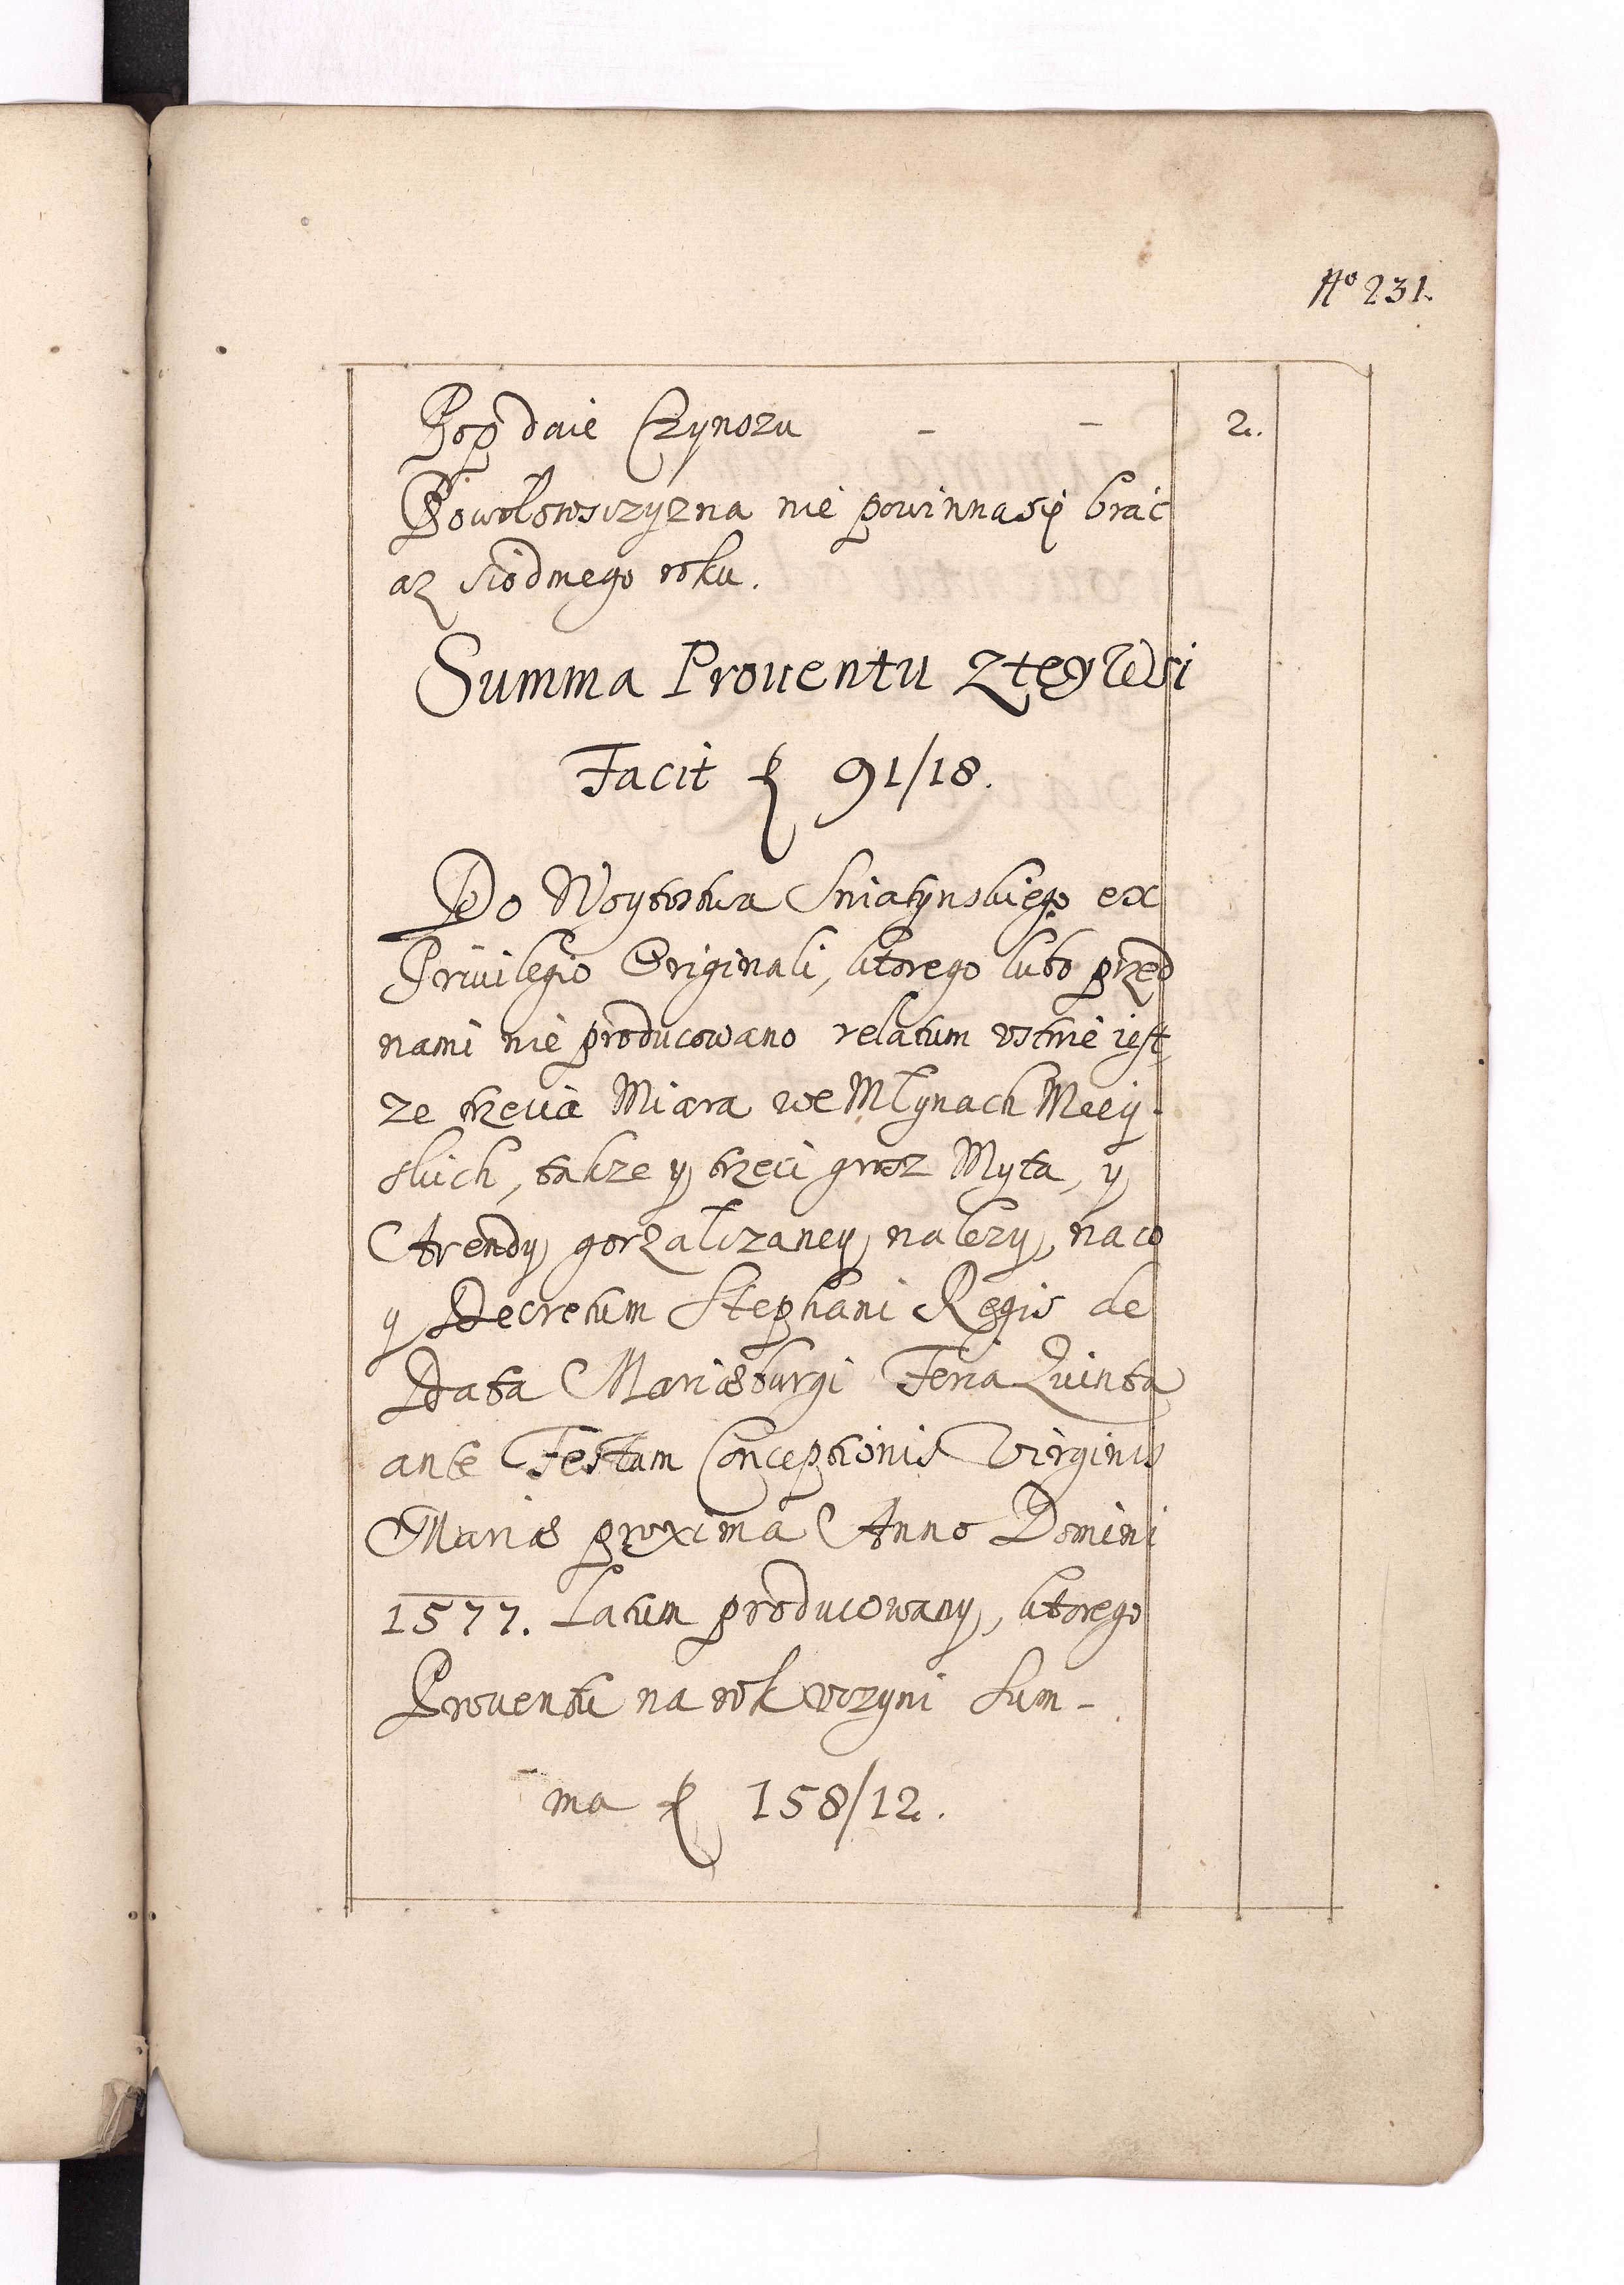 No 231.
Pop daie Czynszu - - 2.
Powołowsczyzna nie powinna się brać
az siodmego roku.
Summa Prouentu z tey Wsi
Facit f 91/18.
Do Woytostwa Sniatynskiego ex
Priuilegio Originali, ktorego lubo przed
nami nie producowano relatum vstnie iest
ze trzecia Miara we Młynach Miey-
skich, takze y trzeci grosz Myta, y
Arendy gorzałczaney nalezy, na co
y Decretum Stephani Regis de
Data Mariæburgi Feria Quinta
ante Festum Conceptionis Virginis
Mariæ proxima Anno Domini
1577. Latum producowany, ktorego
Prouentu na rok vczyni Sum-
ma f 158/12.